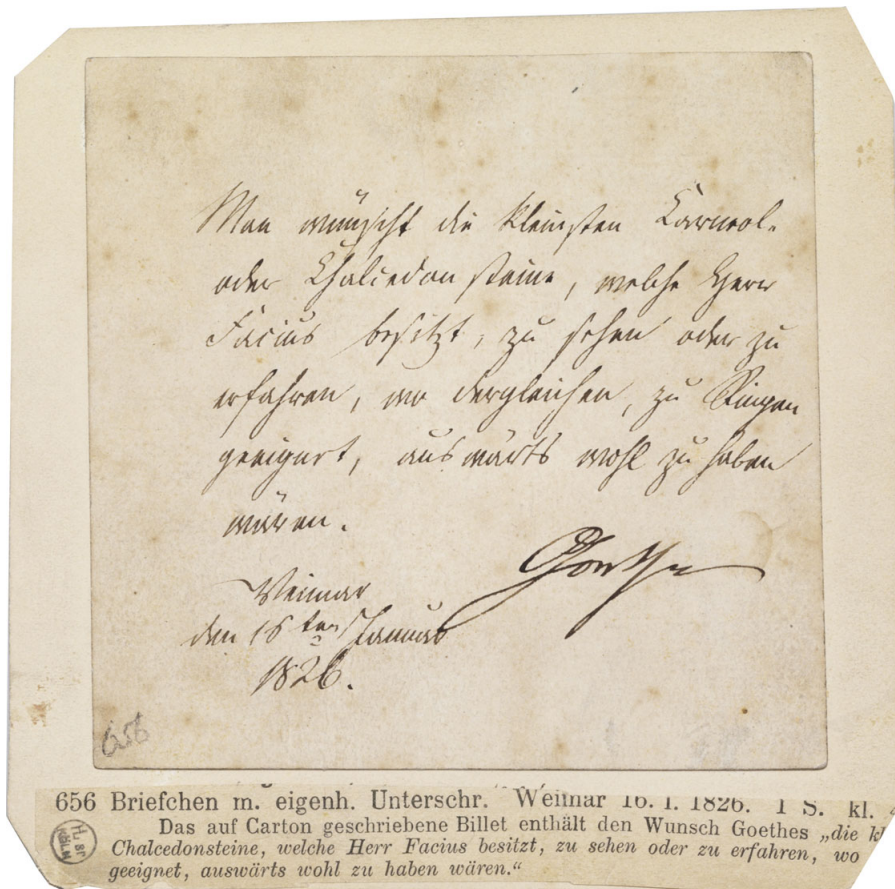 Man wünscht die kleinsten Carneol-
oder Chalcedonsteine, welche Herr
Facius besitzt, zu sehen oder zu
erfahren, wo dergleichen, zu Ringen
geeignet, auswärts wohl zu haben
wären.
Goethe
Weimar
den 16ten Januar
1826.
656
656 Briefchen m. eigenh. Unterschr. Weimar 16. I. 1826. 1 S. kl.
Das auf Carton geschriebene Billet enthält den Wunsch Goethes „die
Chalcedonsteine, welche Herr Facius besitzt, zu sehen oder zu erfahren, wo
geeignet, auswärts wohl zu haben wären.“
KÖLN